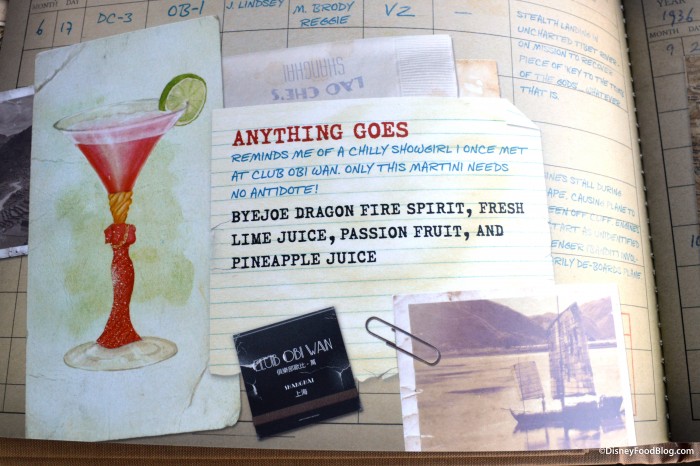 MONTH DAY
6 17 DC-3 OB-1 J. LINDSEY M. BRODY V2 —
REGGIE
STEALTH LANDING IN
UNCHARTED TIBET RIVER
ON MISSION TO RECOVER
PIECE OF KEY TO THE TOMB
OF THE GODS, WHATEVER
THAT IS.
YEAR
1936
MONTH
LAO CHE'S
SHANGHAI
ANYTHING GOES
REMINDS ME OF A CHILLY SHOWGIRL I ONCE MET
AT CLUB OBI WAN. ONLY THIS MARTINI NEEDS
NO ANTIDOTE!
BYEJOE DRAGON FIRE SPIRIT, FRESH
LIME JUICE, PASSION FRUIT, AND
PINEAPPLE JUICE
STALL DURING
APE, CAUSING PLANE TO
OFF CLIFF
START AS UNIDENTIFIED
ENGER (BANDIT)
RILY DE-BOARDS PLANE
CLUB OBI WAN
俱樂部歐比·萬
SHANGHAI
上海
©DisneyFoodBlog.com